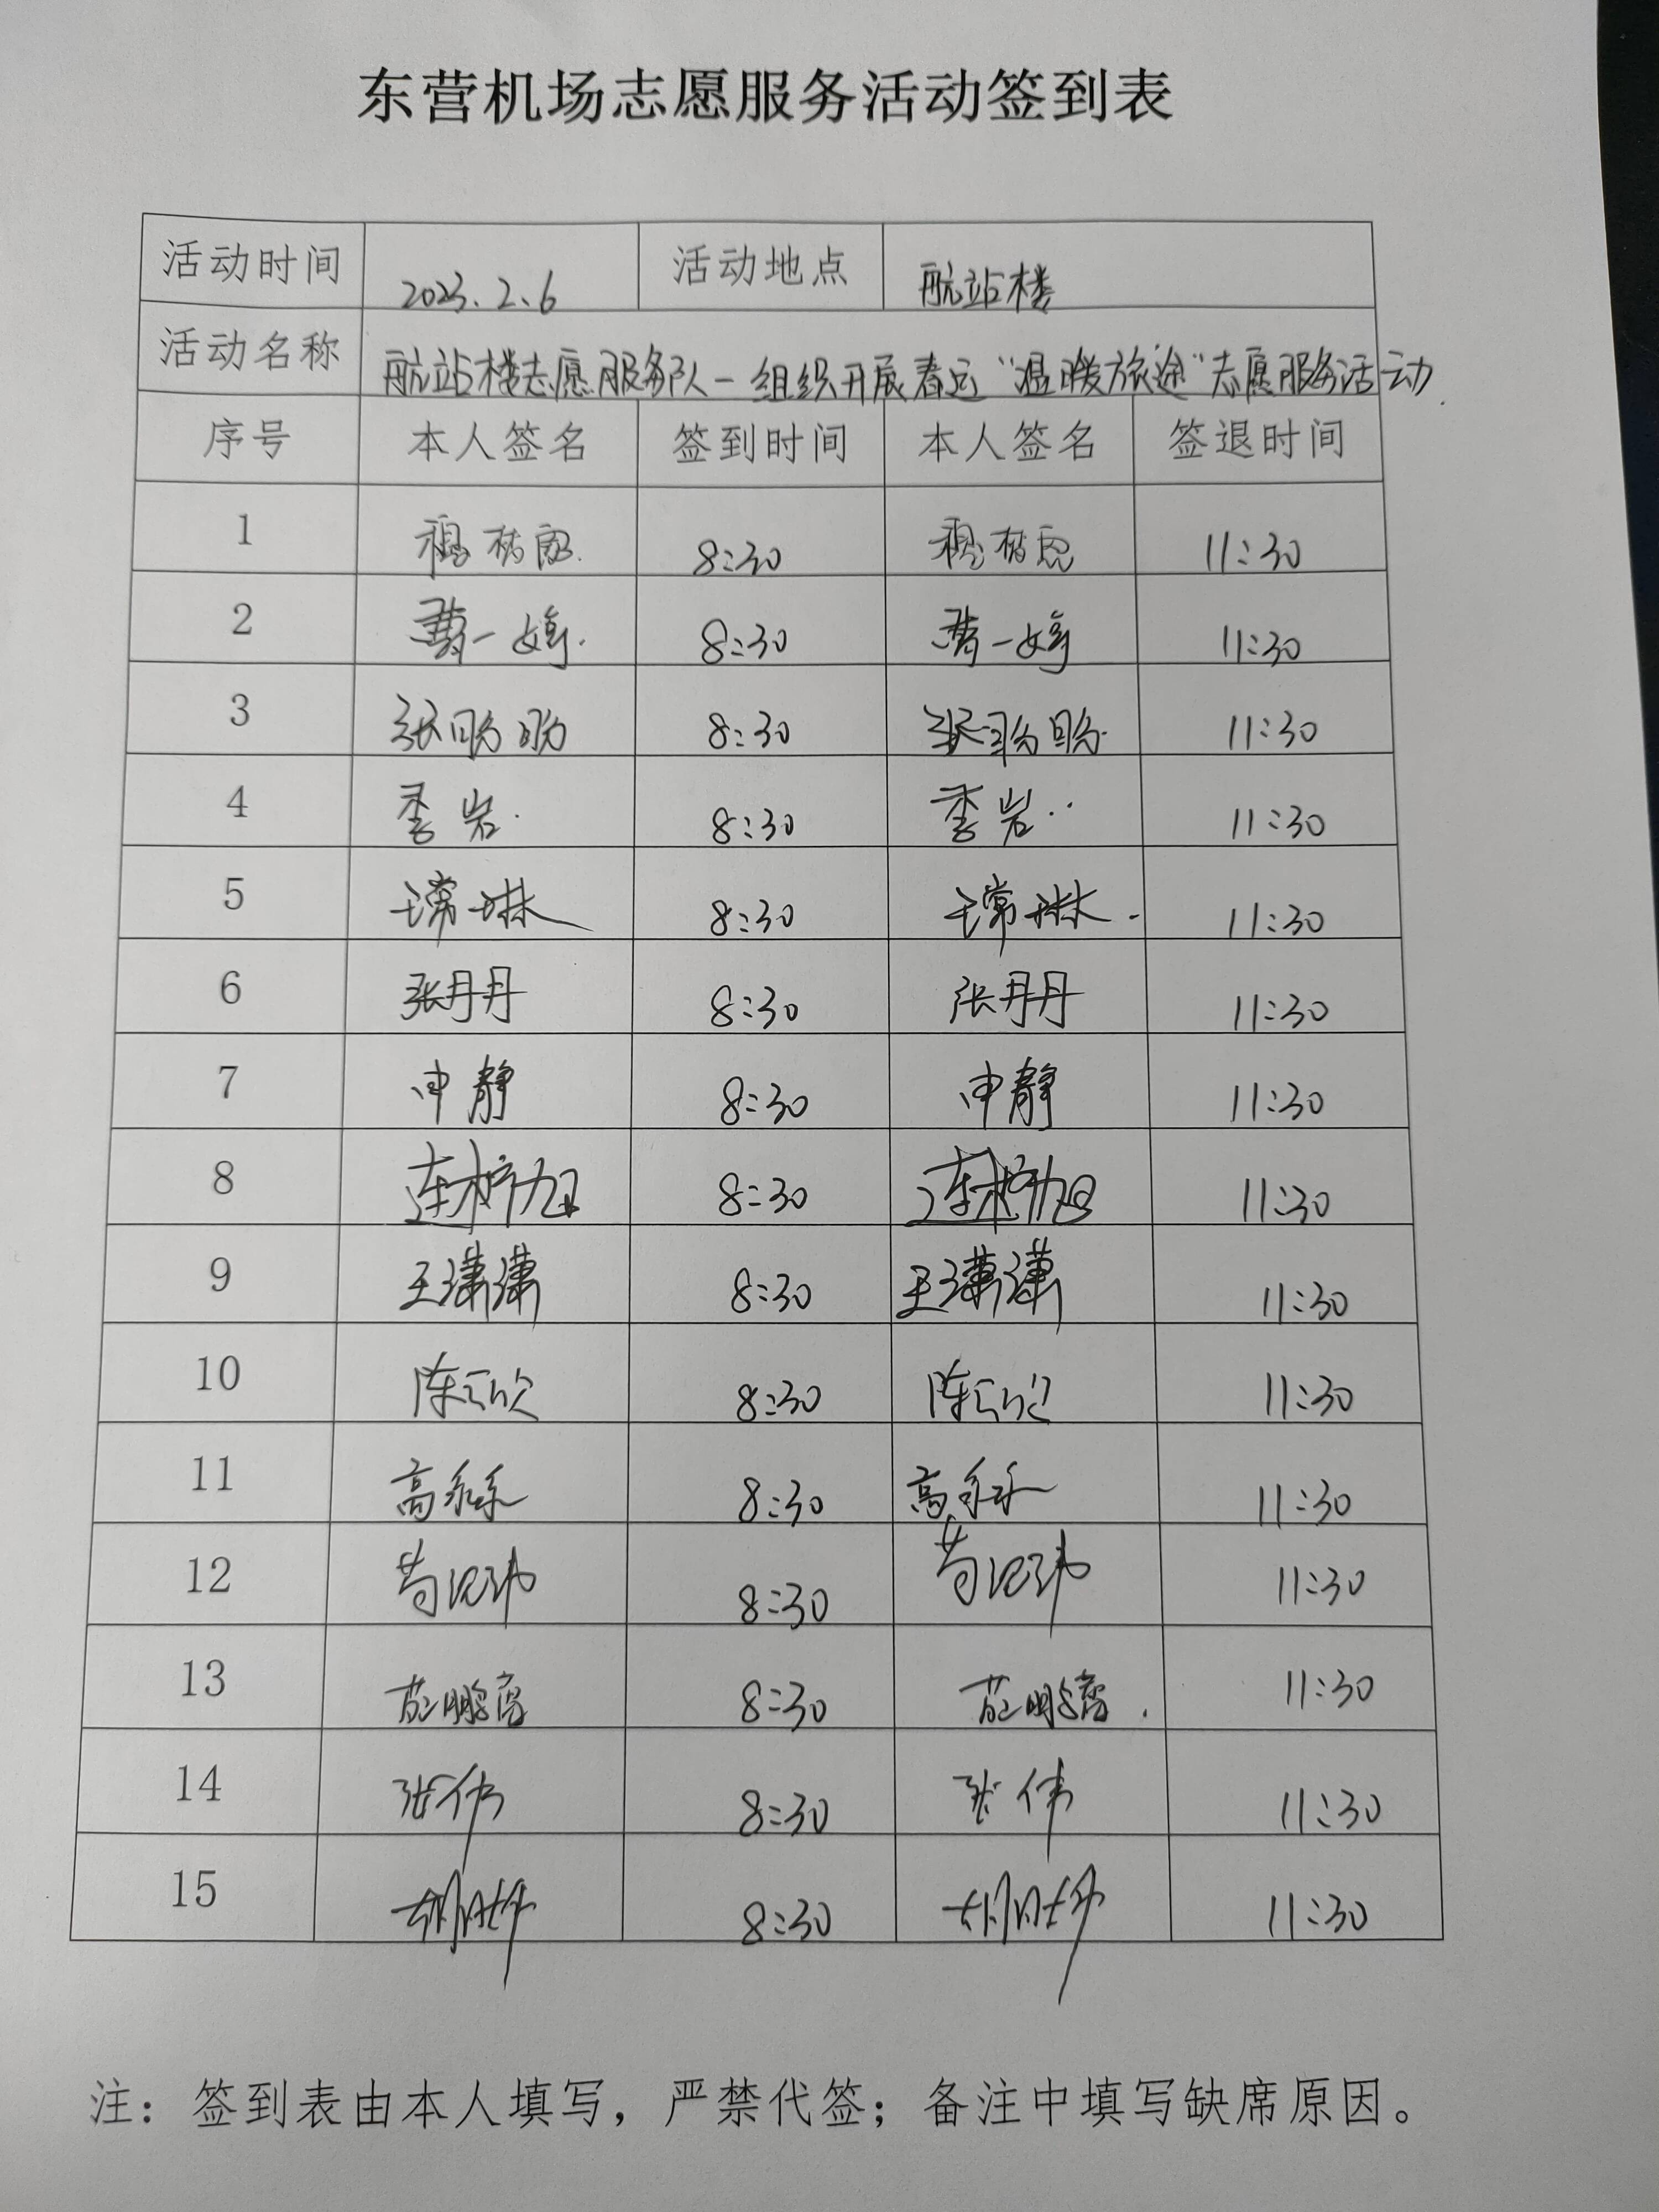 东营机场志愿服务活动签到表
活动时间 2023.2.6 活动地点 航站楼
活动名称 航站楼志愿服务队-组织开展春运“温暖旅途”志愿服务活动.
序号 本人签名 签到时间 本人签名 签退时间
1 8:30 11:30
2 曹一婷. 8:30 曹一婷 11:30
3 张盼盼 8:30 张盼盼. 11:30
4 季岩. 8:30 季岩.. 11:30
5 王常琳 8:30 王常琳. 11:30
6 张丹丹 8:30 张丹丹 11:30
7 申静 8:30 申静 11:30
8 8:30 11:30
9 王潇潇 8:30 王潇潇 11:30
10 陈 8:30 陈 11:30
11 高 8:30 高 11:30
12 8:30 11:30
13 8:30 11:30
14 张伟 8:30 张伟 11:30
15 8:30 11:30
注：签到表由本人填写，严禁代签；备注中填写缺席原因。